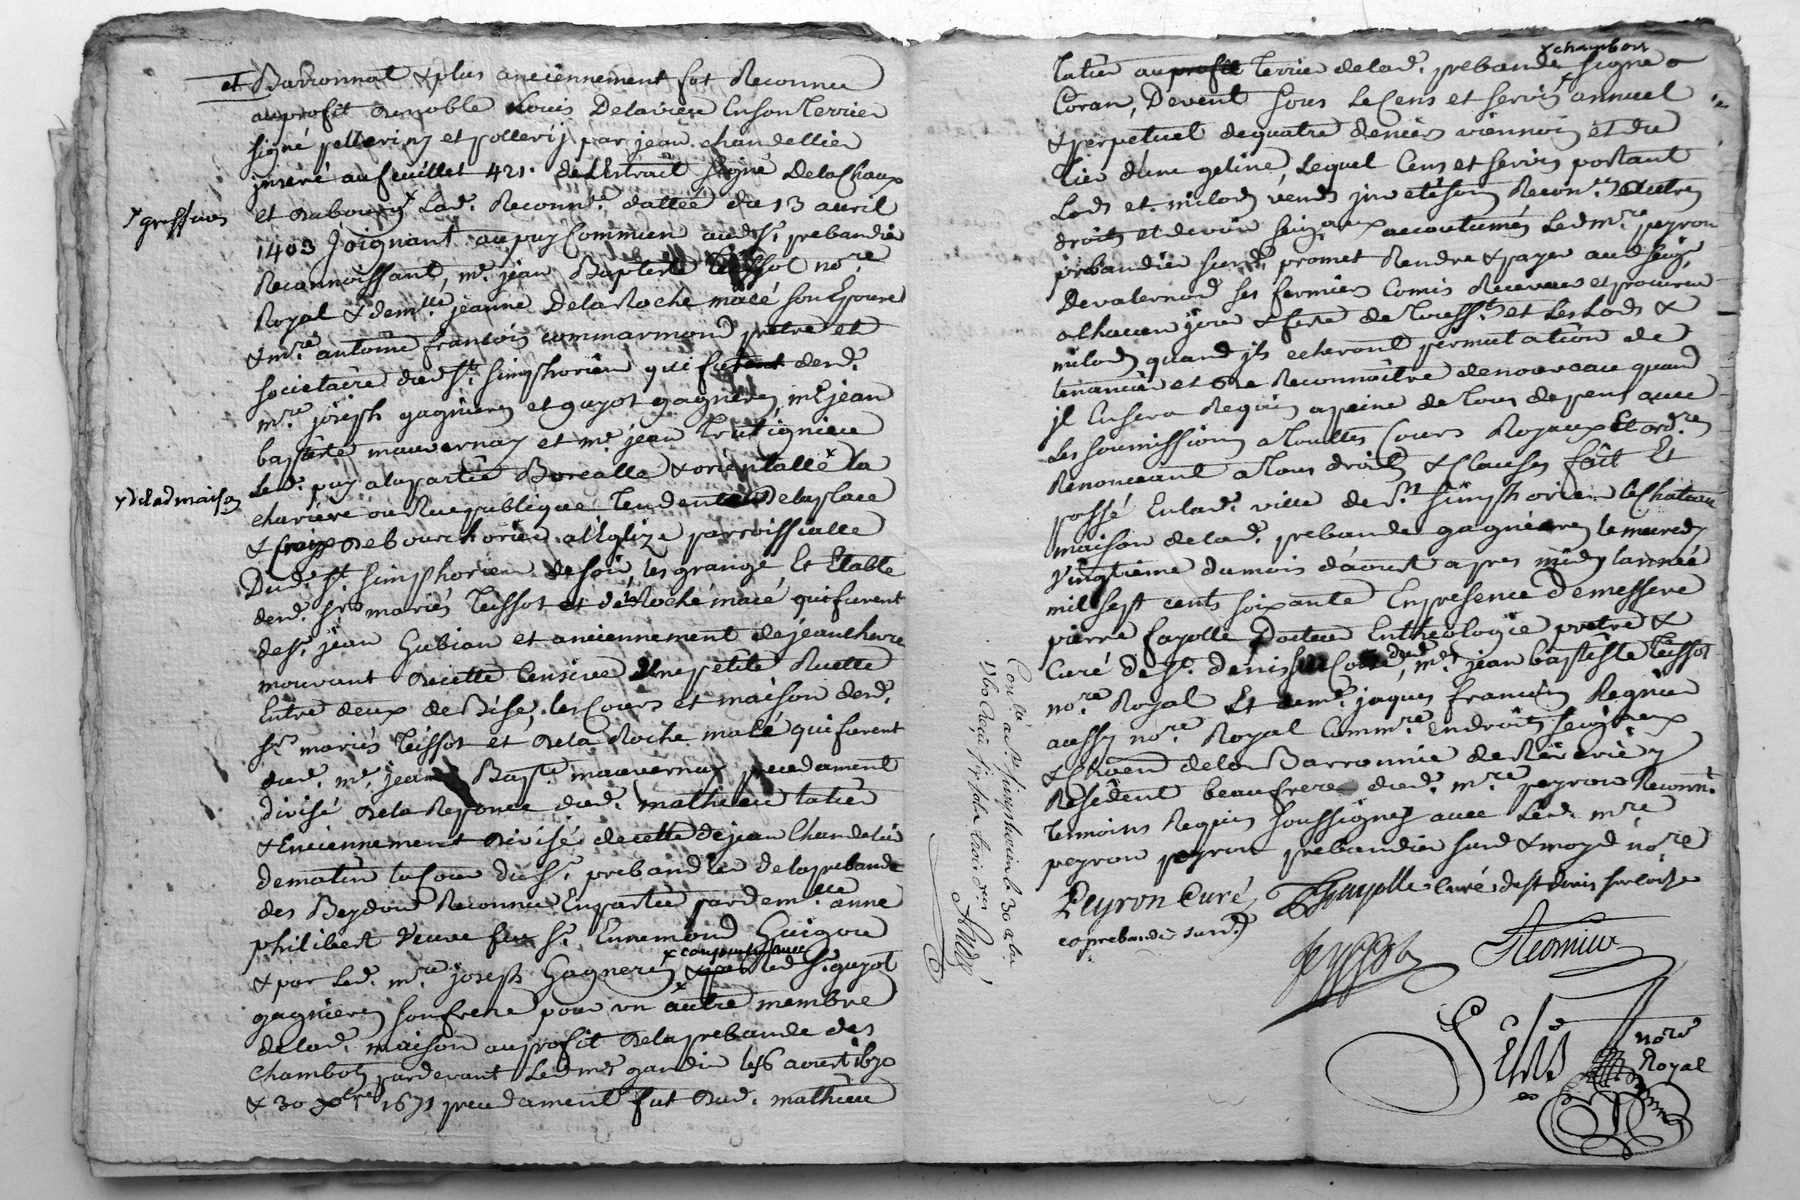 et Barronnat & plus anciennement fut Reconnue
au profit de noble Louis Delavieue En son Terrier
signé pellerin et pollerij par jean chandellier
jnseré au feuillet 421. de L'Extrait signé Delachaux
x greffiers
et dubourg x Lad.e Reconn.ce dattée du 13 avril
1403 Joignant au puy Commun aud. Sr. prebandier
Reconnoissant, me. jean Baptiste Teissot no.re
Royal & dem.lle jeanne De la Roche macé son Epouse
& m.re antoine françois commarmond prêtre et
societaire dud. St. Simphorien qui furent desd.
m.re joseph gagnieres et guyot gagnieres me jean
baptiste mauvernay et me. jean
x de lad maison
Led. puy a la partie Borealle & orientalle x la
charriere ou Rue publique Tendente De la place
& de bourchorieu a l'Eglize parroissialle
Dud. St. Simphorien de soir, les grange Et Etable
desd. Srs mariés Teissot et de la Roche macé qui furent
de Sr. jean Gubian et anciennement de jean
mouvant de cette Censive Une petite Ruette
Entre deux de Bise, les Cours et maison desd.
Srs mariés Teissot et de la Roche macé qui furent
dud. me. jean Bapte mauvernay precedament
divisé de la Reponce dud. mathieu tatier
& Enciennement divisé de cette de jean Chandelier
de matin la Cour du Sr. prebandier de la prebande
des Beydon Reconnue En partie par dem.lle anne
philibert Veuve feu Sr. Ennemond Guigou
& par Led. m.re joseph Gagneres x led Sr. guyot
gagnieres son frere pour un autre membre
de lad. maison au profit de la prebande des
Chambots pardevant Led me gandin les 6 avout 1670
& 30 xbre 1671 precedament fut dud. mathieu
x chambon
tatier au profit terrier de lad. prebande x signé
Coran, Devent sous Le Cens et servis annuel
& perpetuel de quatre deniers viennois et du
tier d'une geline, Lequel Cens et servis portant
Lods et milods vends jnvetison Reconn.ce & autres
droits et devoirs seig.aux accoutumés Led m.re peyron
prebandier susd. promet Rendre & payer aud seig.r
Devalernod ses fermiers Comis Receveur et procureur
a chacun jour & feste de Touss.ts et Les Lods &
milods quand jls echeront permutation de
tenancier et de Reconnoitre de nouveau quand
jl En sera Requis a peine de tous depens avec
Les soumissions a touttes Cours Royaux Et ord.res
Renonceant a tous droits & Clauses fait Et
passé En lad. ville de St. Simphorien le Chateau
maison de lad. prebande gagnieres le mercredy
Vingtieme du mois d'avout apres midy l'année
mil sept cents soixante En presence de messire
pierre fayolle Docteur En theologie prêtre &
Curé de St. denis sur Coise dud. me. jean baptiste Teissot
no.re Royal Et de me. jaques francois Regnier
aussy no.re Royal Comm.re En droits seig.aux
& de la Barronnie de Riverie y
Resident beau frere dud. m.re peyron Reconn.t
temoins Requis soussignés avec Led. m.re
peyron prebandier susd & moyd. no.re
Peyron Curé Fayolle curé de st denis sur coise
et prebandier susd.
Teyssot Regnier
no.re
Royal
Con.lé a St Simphorien le 30 a.bre
1760 Reçu